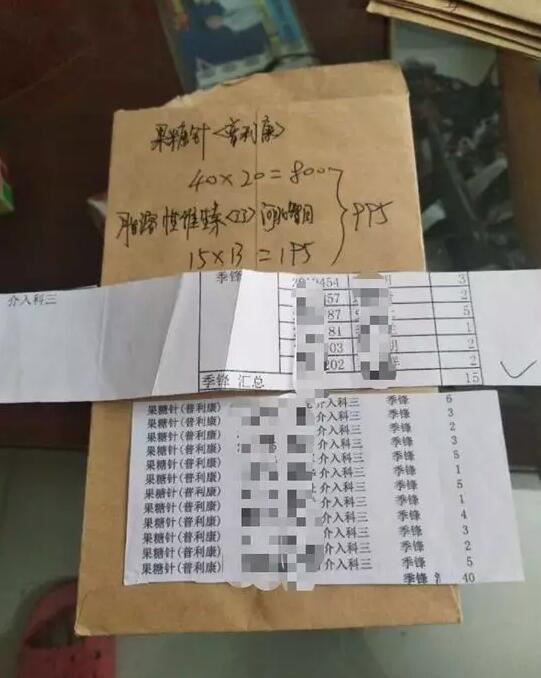 果糖针<普利康>
40×20=800
脂溶性维生素 河北智同
15×13=195
995
介入科三 季锋 454 3
57 2
87 5
81 1
03 2
202 2
季锋 汇总 15
果糖针(普利康) 介入科三 季锋 6
果糖针(普利康) 介入科三 季锋 3
果糖针(普利康) 介入科三 季锋 2
果糖针(普利康) 介入科三 季锋 3
果糖针(普利康) 介入科三 季锋 5
果糖针(普利康) 介入科三 季锋 1
果糖针(普利康) 介入科三 季锋 5
果糖针(普利康) 介入科三 季锋 1
果糖针(普利康) 介入科三 季锋 4
果糖针(普利康) 介入科三 季锋 3
果糖针(普利康) 介入科三 季锋 2
果糖针(普利康) 介入科三 季锋 5
季锋 40